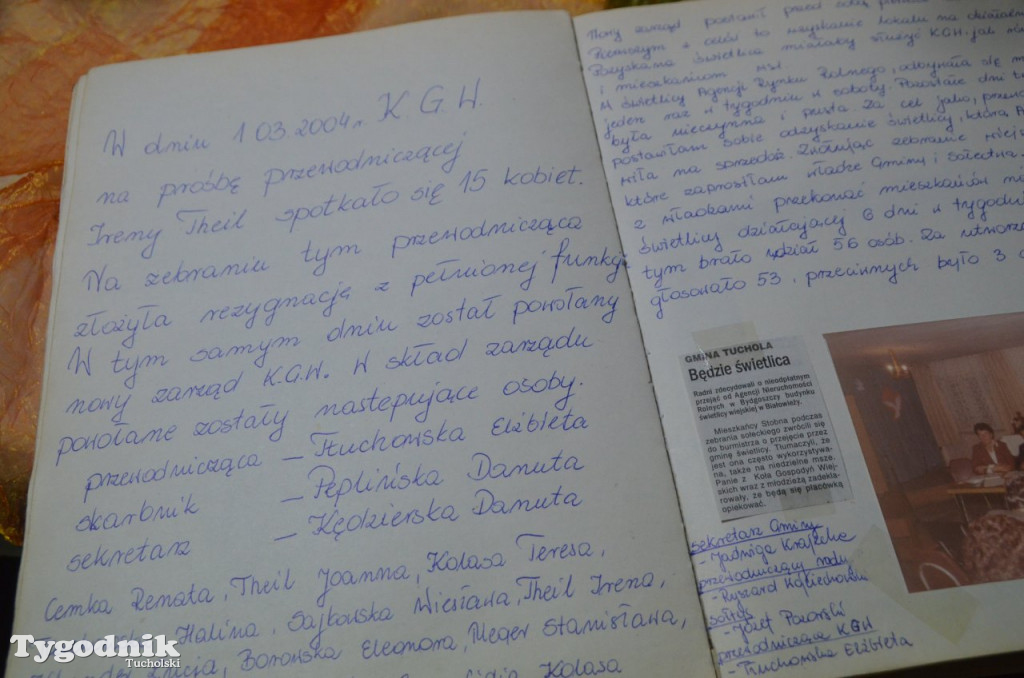 W dniu 1 03.2004r. K.G.W.
na prośbę przewodniczącej
Ireny Theil spotkało się 15 kobiet.
Na zebraniu tym przewodnicząca
złożyła rezygnację z pełnionej funkcji
W tym samym dniu został powołany
nowy zarząd K.G.W. W skład zarządu
powołane zostały następujące osoby.
przewodnicząca – Tłuchowska Elżbieta
skarbnik – Peplińska Danuta
sekretarz – Kędzierska Danuta
Cemka Renata, Theil Joanna, Kolasa Teresa,
Halina, Sajkowska Wiesława, Theil Irena,
Borowska Eleonora, Meger Stanisława,
Kolasa
Nowy zarząd postawił przed sobą
Pierwszym z celów to uzyskanie lokalu na
Pozyskana świetlica miałaby służyć K.G.W. jak
i mieszkańcom wsi.
W świetlicy Agencji Rynku Rolnego, odbywała się
jeden raz w tygodniu w soboty. Pozostałe dni
była nieczynna i pusta. Za cel jako,
postawiłam sobie odzyskanie świetlicy, którą
wiła na sprzedaż. Zwołując zebranie
które zaprosiłam władze Gminy i Sołectwa.
z władzami przekonać mieszkańców
świetlicy działającej 6 dni w
tym brało udział 56 osób. Za
głosowało 53, przeciwnych było 3
GMINA TUCHOLA
Będzie świetlica
Radni zdecydowali o nieodpłatnym
przejęć od Agencji Nieruchomości
Rolnych w Bydgoszczy budynku
świetlicy wiejskiej w Białowieży.
Mieszkańcy Stobna podczas
zebrania sołeckiego zwrócili się
do burmistrza o przejęcie przez
gminę świetlicy. Tłumaczyli, że
jest ona często wykorzystywa-
na, także na niedzielne msze.
Panie z Koła Gospodyń Wiej-
skich wraz z młodzieżą zadekla-
rowały, że będą się placówką
opiekować.
sekretarz Gminy
- Jadwiga
przewodniczący rady
- Ryszard
sołtys
- Józef
przewodnicząca KGW
- Tłuchowska Elżbieta
Tygodnik
Tucholski